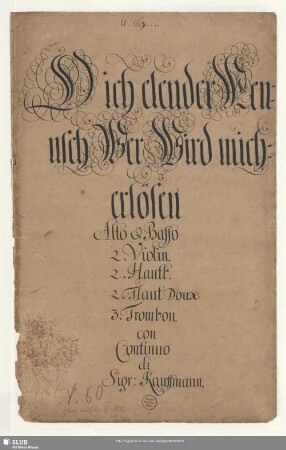 O ich elender Men-
nsch Wer Wird mich
erlösen
Alto & Basso
2. Violin.
2. Hautb.
2. Flaut Doux
3. Trombon.
con
Continuo
di
Sigr: Kauffmann.
V. 60
SLUB